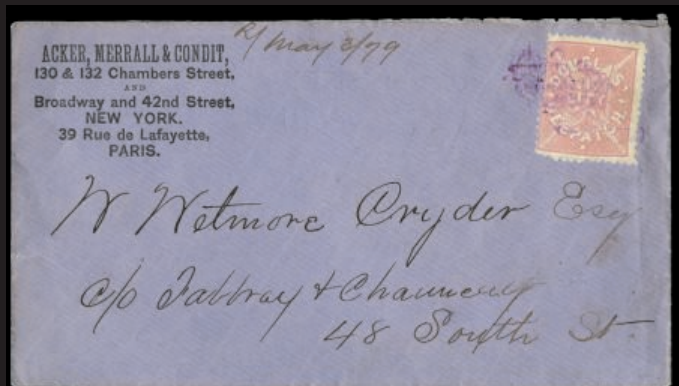 R/ May 2/79
ACKER, MERRALL & CONDIT,
130 & 132 Chambers Street,
AND
Broadway and 42nd Street,
NEW YORK.
39 Rue de Lafayette,
PARIS.
DOUGLAS'
CITY
DESPATCH
W Wetmore Cryder Esq
c/o Fabbray & Chauncey
48 South St